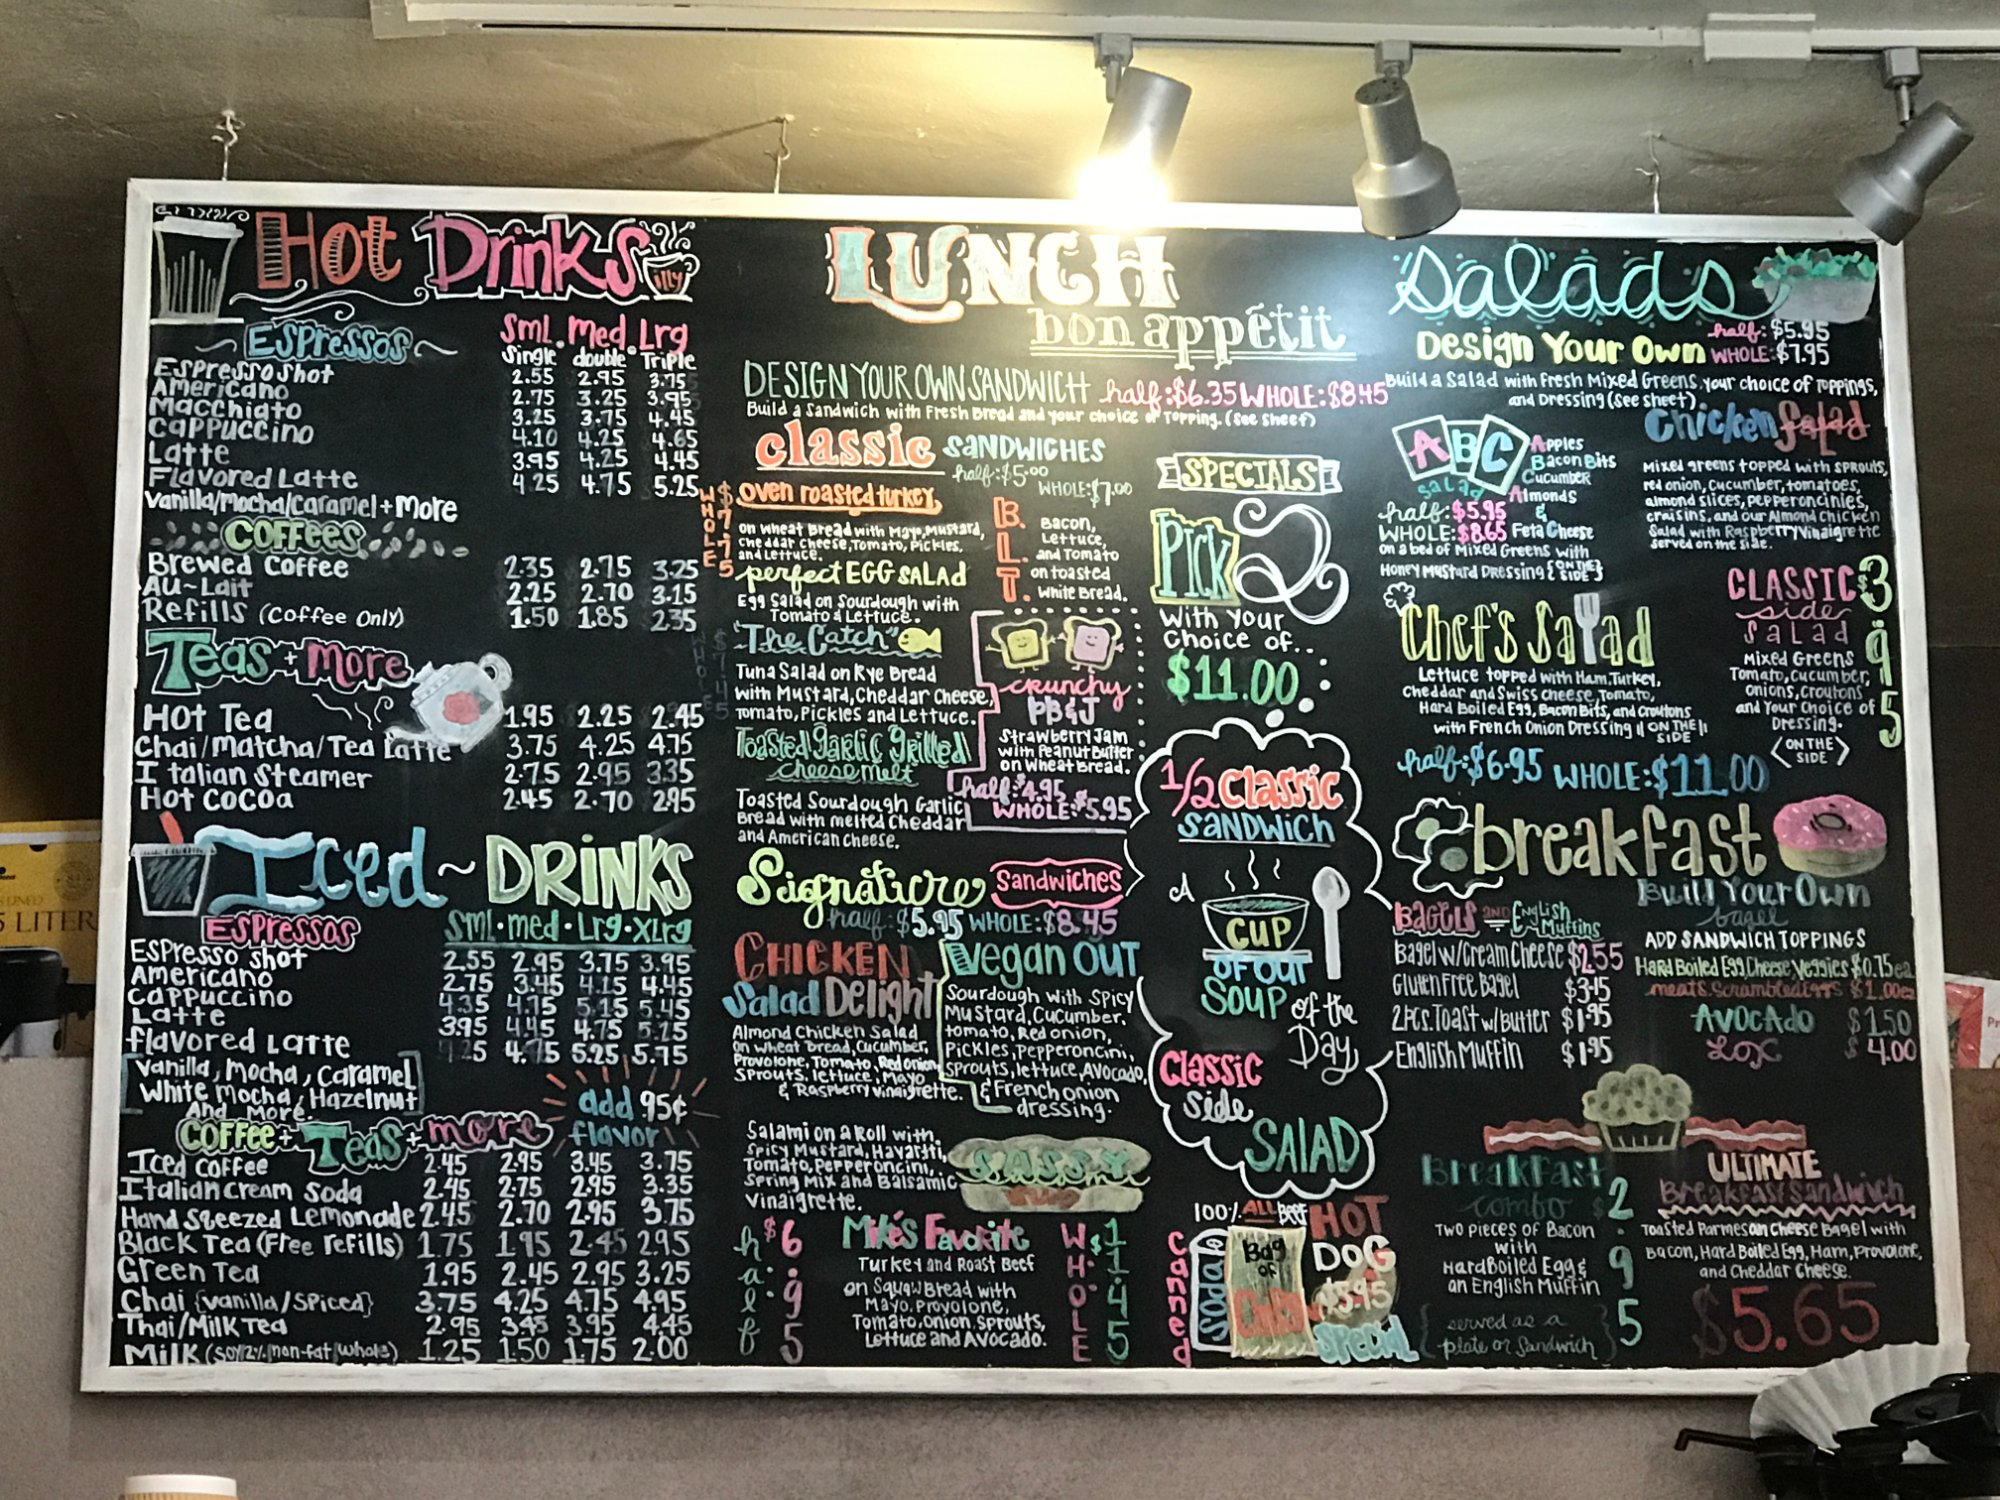 Hot Drinks
illy
Espressos
Sml. Med. Lrg
Single double Triple
Espresso Shot 2.55 2.95 3.75
Americano 2.75 3.25 3.95
Macchiato 3.25 3.75 4.45
Cappuccino 4.10 4.25 4.65
Latte 3.95 4.25 4.45
Flavored Latte 4.25 4.75 5.25
Vanilla/Mocha/Caramel + More
Coffees
Brewed Coffee 2.35 2.75 3.25
Au-Lait 2.25 2.70 3.15
Refills (Coffee Only) 1.50 1.85 2.35
Teas + More
Hot Tea 1.95 2.25 2.45
Chai/Matcha/Tea Latte 3.75 4.25 4.75
Italian Steamer 2.75 2.95 3.35
Hot Cocoa 2.45 2.70 2.95
Iced ~ Drinks
Espressos
Sml. med. Lrg. XLrg
Espresso shot 2.55 2.95 3.75 3.95
Americano 2.75 3.45 4.15 4.45
Cappuccino 4.35 4.75 5.15 5.45
Latte 3.95 4.45 4.75 5.25
flavored Latte 4.75 5.25 5.75
[Vanilla, Mocha, Caramel
White Mocha, Hazelnut]
And More.
add 95¢
flavor
Coffee + Teas + more
Iced Coffee 2.45 2.95 3.45 3.75
Italian Cream Soda 2.45 2.75 2.95 3.35
Hand Sqeezed Lemonade 2.45 2.70 2.95 3.75
Black Tea (Free refills) 1.75 1.95 2.45 2.95
Green Tea 1.95 2.45 2.95 3.25
Chai {Vanilla/Spiced} 3.75 4.25 4.75 4.95
Thai/Milk Tea 2.95 3.45 3.95 4.45
Milk (soy/2%/non-fat/whole) 1.25 1.50 1.75 2.00
LUNCH
bon appétit
DESIGN YOUR OWN SANDWICH half: $6.35 WHOLE: $8.45
Build a Sandwich with Fresh Bread and your choice of Topping. (See Sheet)
classic SANDWICHES
half: $5.00
WHOLE: $7.00
oven roasted turkey
WHOLE $7.75
on wheat Bread with Mayo, Mustard,
cheddar Cheese, Tomato, Pickles,
and Lettuce.
B.L.T.
Bacon,
Lettuce,
and Tomato
on toasted
White Bread.
perfect EGG SALAd
Egg Salad on Sourdough with
Tomato & Lettuce.
"The Catch"
WHOLE $7.45
Tuna Salad on Rye Bread
with Mustard, Cheddar Cheese,
Tomato, Pickles and Lettuce.
Crunchy
PB&J
Strawberry Jam
with Peanut Butter
on Wheat Bread.
half: $4.95
WHOLE: $5.95
Toasted garlic grilled
cheese melt
Toasted Sourdough Garlic
Bread with melted Cheddar
and American cheese.
Signature Sandwiches
half: $5.95 WHOLE: $8.45
CHICKEN
Salad Delight
Almond Chicken Salad
on wheat Bread, Cucumber,
Provolone, Tomato, Red onion,
Sprouts, lettuce, Mayo
& Raspberry Vinaigrette.
Vegan OUT
Sourdough with Spicy
Mustard, Cucumber,
tomato, Red onion,
Pickles, Pepperoncini,
Sprouts, lettuce, Avocado,
& French onion
dressing.
Salami on a Roll with,
Spicy Mustard, Havarti,
Tomato, Pepperoncini,
Spring Mix and Balsamic
Vinaigrette.
SASSY
Salami
half $6.95
Mike's Favorite
Turkey and Roast Beef
on Squaw Bread with
Mayo, Provolone,
Tomato, onion, sprouts,
Lettuce and Avocado.
WHOLE $11.45
SPECIALS
PICK 2
With Your
Choice of..
$11.00
1/2 Classic
SANDWICH
A
CUP
OF OUR
SOUP of the
Day
Classic
Side
SALAD
100% ALL Beef HOT
DOG
$5.95
SPECIAL
Canned
Soda
Bag
of
Chips
Salads
Design Your Own half: $5.95
WHOLE: $7.95
Build a Salad with Fresh Mixed Greens, your choice of Toppings,
and Dressing (See sheet)
ABC
Salad
Apples
Bacon Bits
Cucumber
Almonds
&
Feta Cheese
half: $5.95
WHOLE: $8.65
on a bed of Mixed Greens with
Honey Mustard Dressing {ON THE SIDE}
Chicken Salad
Mixed greens topped with sprouts,
red onion, cucumber, tomatoes,
almond slices, pepperoncinies,
craisins, and our Almond Chicken
Salad with Raspberry Vinaigrette
served on the side.
Chef's Salad
Lettuce topped with Ham, Turkey,
Cheddar and Swiss cheese, Tomato,
Hard Boiled Egg, Bacon Bits, and Croutons
with French Onion Dressing || ON THE SIDE ||
half: $6.95 WHOLE: $11.00
CLASSIC $3.95
side
SALAD
Mixed Greens
Tomato, cucumber,
onions, croutons
and Your Choice of
Dressing.
<ON THE SIDE>
breakfast
BAGELS AND English Muffins
Bagel w/Cream Cheese $2.55
Gluten Free Bagel $3.15
2Pcs. Toast w/Butter $1.95
English Muffin $1.95
Build Your Own
bagel
ADD SANDWICH TOPPINGS
Hard Boiled Egg, Cheese, Veggies $0.75ea
meats, Scrambled Eggs $1.00ea
Avocado $1.50
Lox $4.00
Breakfast
combo $2.95
Two pieces of Bacon
with
Hard Boiled Egg &
an English Muffin
{served as a
plate or Sandwich}
ULTIMATE
Breakfast Sandwich
Toasted Parmesan Cheese Bagel with
Bacon, Hard Boiled Egg, Ham, Provolone,
and Cheddar Cheese.
$5.65
5 LITER